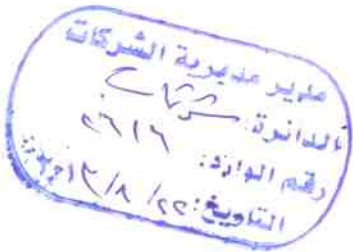 مدير مديرية الشركات
الدائرة: شركات
رقم الوارد: ٢٦١٦
التاريخ: ٢٢/٨/